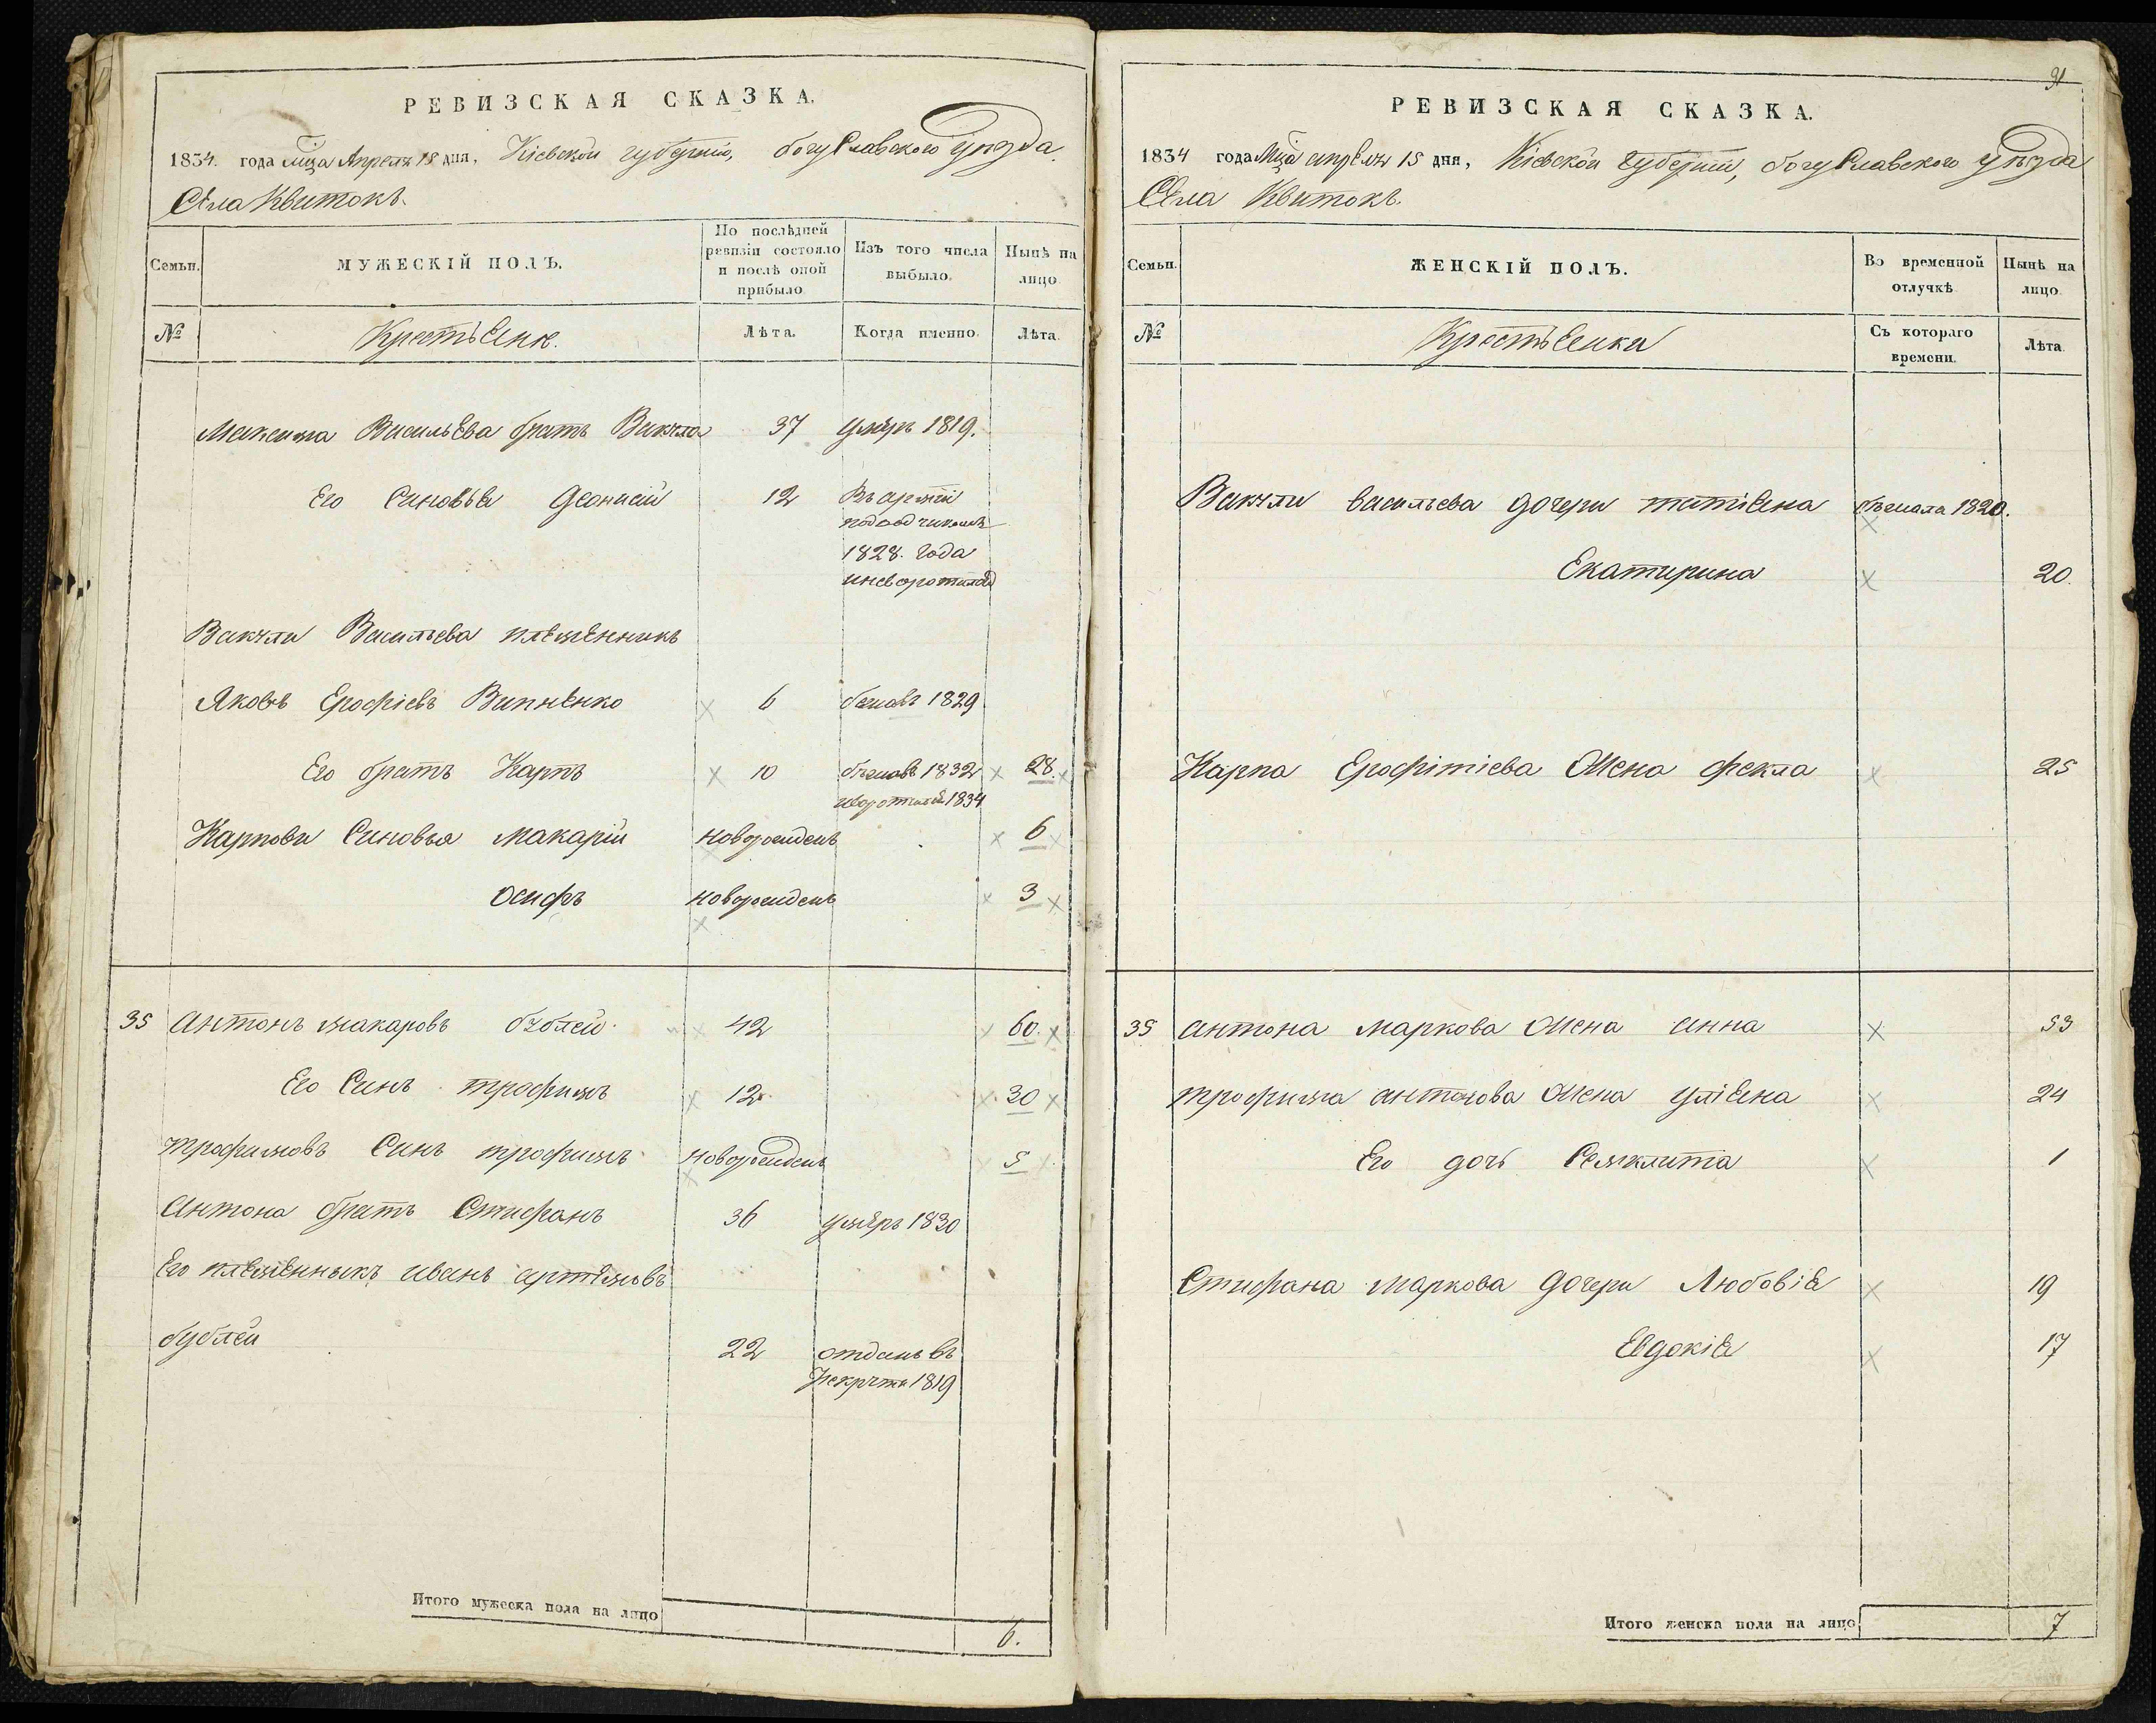 РЕВИЗСКАЯ СКАЗКА.
1834. года мца Апреля 15 дня, Кіевской губерніи, богуславского уѣзда
Села Квитокъ.
Семьи.
МУЖЕСКІЙ ПОЛЪ.
По послѣдней ревизіи состояло и послѣ оной прибыло.
Изъ того числа выбыло.
Нынѣ на лицо.
№
Крестьене.
Лѣта.
Когда именно.
Лѣта.
Максима Васильева братъ Вакула 37 умеръ 1819.
Его Сыновья Деонисій 12
1828. года
Вакули Васильева племенникъ
Яковъ Ерофіевъ 6 бежалъ 1829
Его братъ Карпъ 10 бежалъ 1832 28.
1834
Карпови Синовья Макарій новорожденъ 6
Осифъ новорожденъ 3
35 Антонъ макаровъ бублей 42 60.
Его Синъ трофимъ 12 30
трофимовъ Синъ трофимъ новорожденъ 5
Антона братъ Стифанъ 36 умеръ 1830
Его племенныкъ иванъ артемовъ
бублей 22 отданъ въ
рекруты 1819
Итого мужеска пола на лицо 6.
91
РЕВИЗСКАЯ СКАЗКА.
1834 года мца апреля 15 дня, Кіевской губерніи, богуславского уѣзда
Села Квитокъ.
Семьи.
ЖЕНСКІЙ ПОЛЪ.
Во временной отлучкѣ.
Нынѣ на лицо.
№
Крестьенки
Съ котораго времени.
Лѣта.
Вакули васильева дочери татіена бежала 1820.
Екатирина 20.
Карпа Ерофітіева жена фекла 25
35 антона маркова жена анна 53
трофима антонова жена уліена 24
Его дочь 1
Стифана маркова дочери Любовіе 19
Евдокіе 17
Итого женска пола на лицо 7